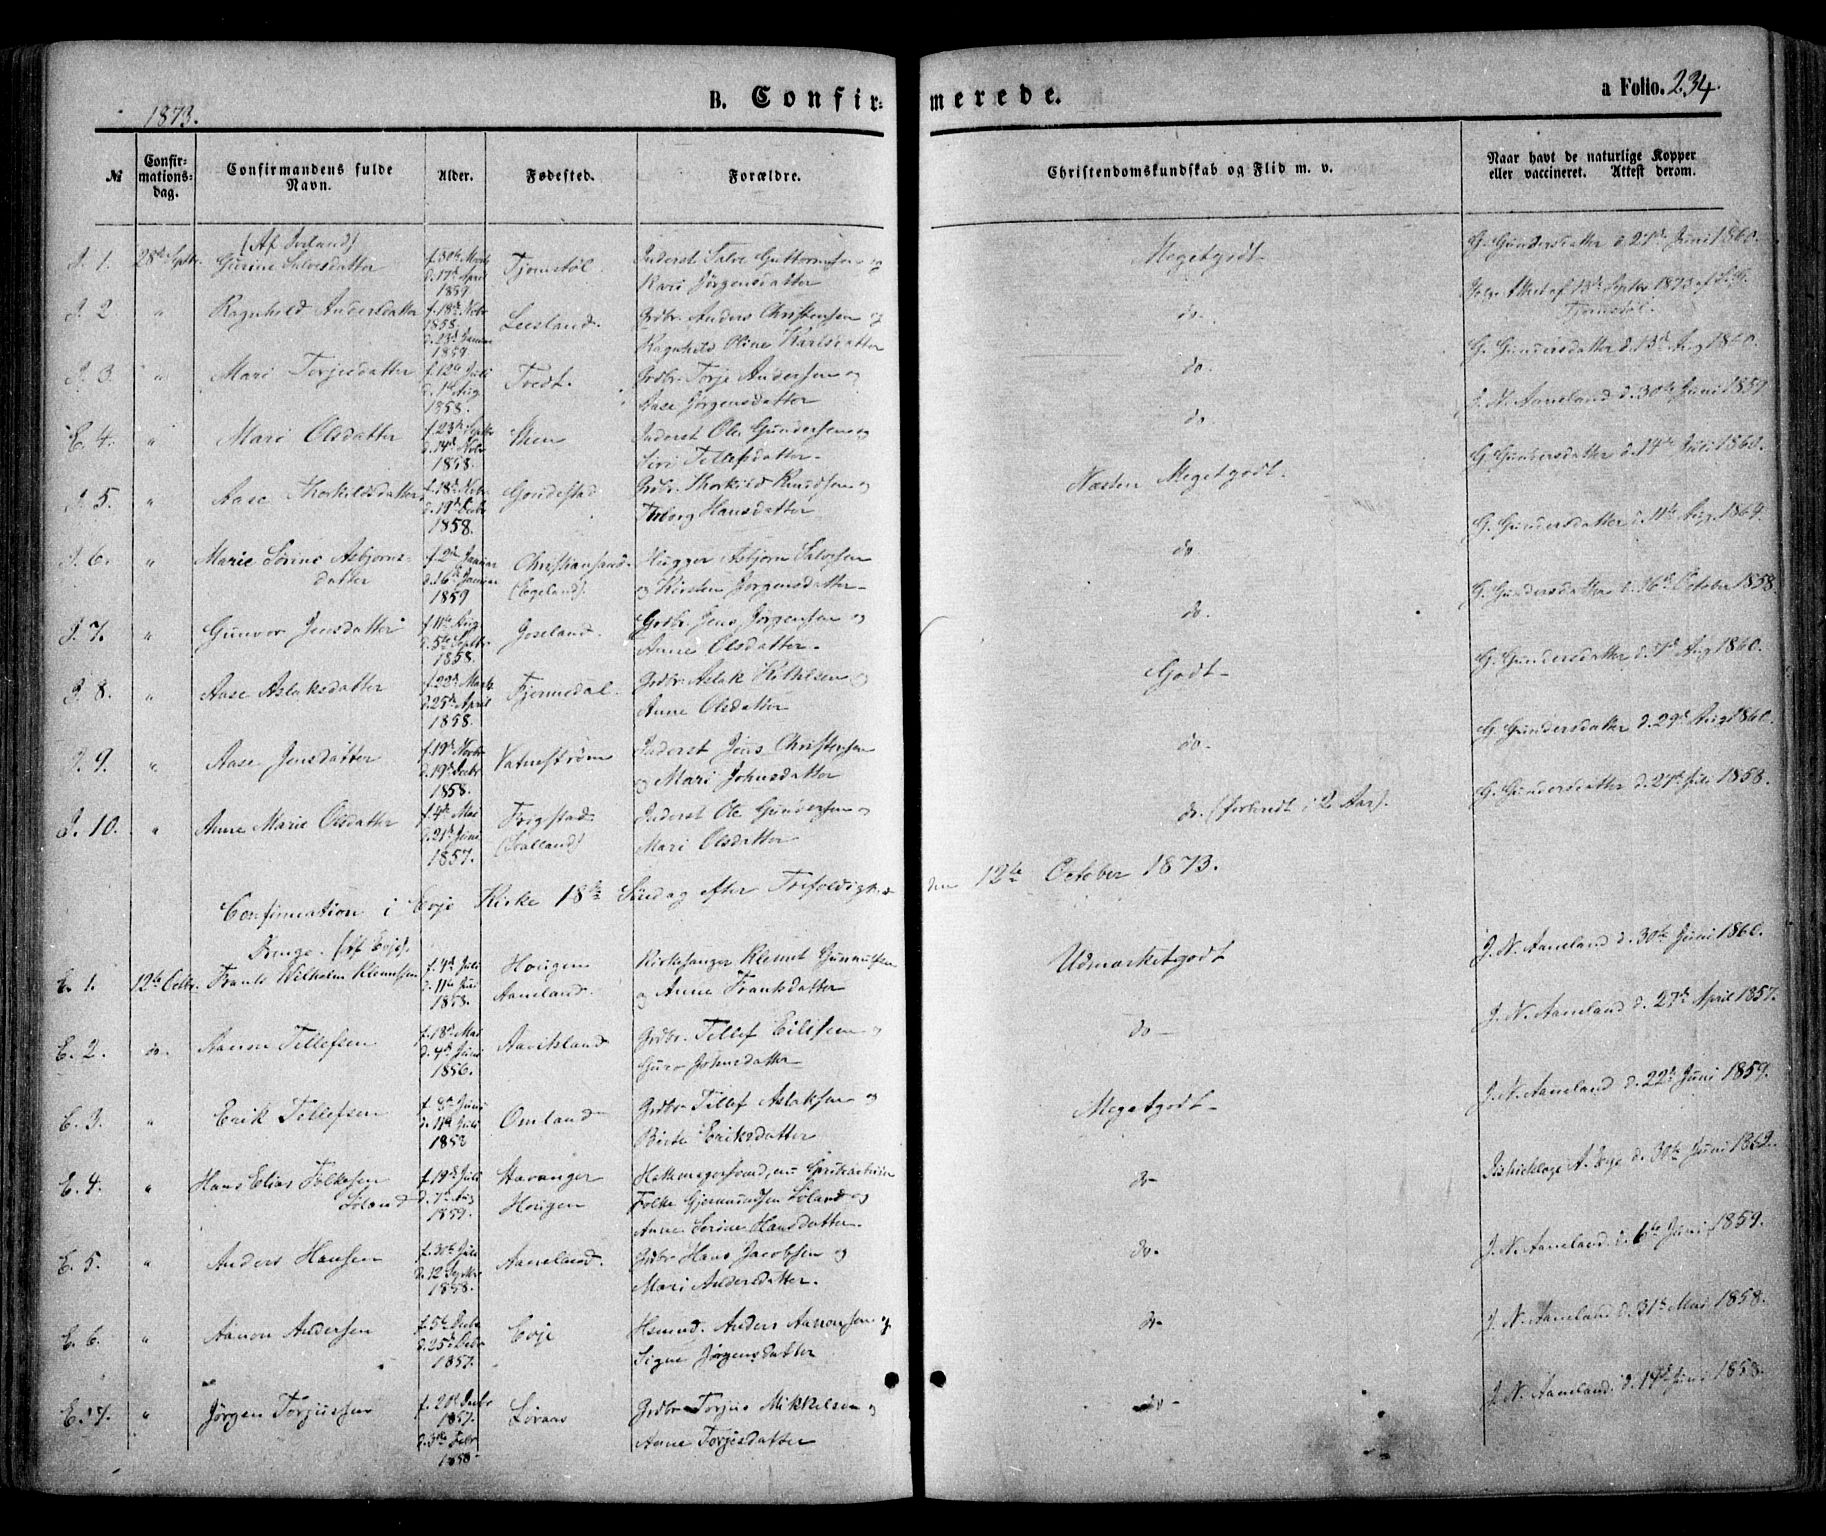 1873.
B. Confirmerede.
a Folio. 234.
№
Confirmationsdag.
Confirmandens fulde Navn.
Alder.
Fødested.
Forældre.
Christendomskundskab og Flid m. v.
Naar havt de naturlige Kopper eller vaccineret. Attest derom.
(Af Iveland)
I. 1. 28de Septbr. Gurine Salvesdatter f. 30te Marts d. 17de April 1859 Tjomstøl. Inderst Salve Guttormsen og Kari Jørgensdatter Megetgodt G. Gundersdatter d. 27de Juni 1860.
I. 2 " Ragnhild Andersdatter f. 18de Novbr 1858. d. 23de Januar 1859 Leesland. Grdbr. Anders Christensen og Ragnhild Oline Karlsdatter do. Attest af 13de Septbr 1873 af
I. 3. " Mari Torjesdatter f. 12te Juli d. 1ste Aug 1858. Tvedt. Grdbr. Torje Andersen og Aase Jørgensdatter do. G. Gundersdatter d. 13de Aug 1860.
E. 4. " Mari Olsdatter f. 23de Septbr d. 14de Novbr 1858. Inderst Ole Gundersen og Siri Tellefsdatter do J. N. Aaneland d. 30te Juni 1859
I. 5. " Aase Thorkildsdatter f. 18de Novbr d. 19de Decbr 1858. Grdbr. Thorkild Knudsen og Torborg Hansdatter Næsten Megetgodt. G. Gundersdatter d. 14de Juli 1860.
I. 6. " Marie Sørine Asbjørnsdatter f. 2den Januar d. 16de Januar 1859 Christianssand. (Egeland). Hugger Asbjørn Salvesen og Kirsten Jørgensdatter do G. Gundersdatter d. 11te Aug. 1864.
I. 7. " Gunvor Jensdatter f. 11te Aug d. 5te Septbr 1858. Joseland. Grdbr. Jens Jørgensen og Anne Olsdatter do. G. Gundersdatter d. 16de October 1858.
I. 8. " Aase Aslaksdatter f. 22de Marts d. 25de April 1858. Fjermedal. Grdbr. Aslak Kittelsen og Anne Olsdatter Godt G. Gundersdatter d. 7de Aug 1860.
I. 9. " Aase Jensdatter f. 19de Novbr d. 19de Decbr 1858. Vatnestrøm Inderst Jens Christensen og Mari Johnsdatter do. G. Gundersdatter d. 29de Aug 1860.
I. 10. " Anne Marie Olsdatter f. 4de Mai d. 21de Juni 1857. Frigstad. Inderst Ole Gundersen og Mari Olsdatter do. (forberedt i 2 Aar). G. Gundersdatter d. 27de Juli 1858.
Confirmation i Evje Kirke 18de Søndag efter Trefoldighed den 12te October 1873.
Drenge. (Af Evje).
E. 1. 12te Octbr. Frants Wilhelm Klemetsen f. 4de Juli d. 11te Juli 1858. Hougen Aaneland. Kirkesanger Klemet Gunnulfsen og Anne Frantsdatter Udmærketgodt J. N. Aaneland d. 30te Juni 1860.
E. 2. do. Aanon Tellefsen f. 18de Mai d. 4de Juni 1856. Aavitsland Grdbr. Tellef Eilifsen og Guro Johnsdatter do J. N. Aaneland d. 27de April 1857.
E. 3. " Erik Tellefsen f. 8de Juni d. 11te Juli 1858 Omland Grdbr. Tellef Aslaksen og Birte Eriksdatter Megetgodt J. N. Aaneland d. 22de Juni 1859.
E. 4. " Hans Elias Folkesen Søland f. 19de Juli d. 7de Aug 1859. Stavanger Hougen Folke Gjermundsen Søland og Anne Serine Hansdatter. do Districtslæge A. Evje d. 30te Juni 1862.
E. 5. " Anders Hansen f. 30te Juli d. 12te Septbr 1858. Aaneland. Grdbr. Hans Jacobsen og Mari Andersdatter. do. J. N. Aaneland d. 6te Juni 1859.
E. 6. " Aanon Andersen f. 5te Decbr d. 25de Decbr 1857. Evje Hsmnd. Anders Aanonsen og Signe Jørgensdatter do J. N. Aaneland d. 31te Mai 1858.
E. 7. " Jørgen Torjussen f. 20de Decbr 1857. d. 3die Febr 1858. Løvaas Grdbr. Torjus Mikkelsen og Anne Torjesdatter do J. N. Aaneland d. 14de Juni 1858.